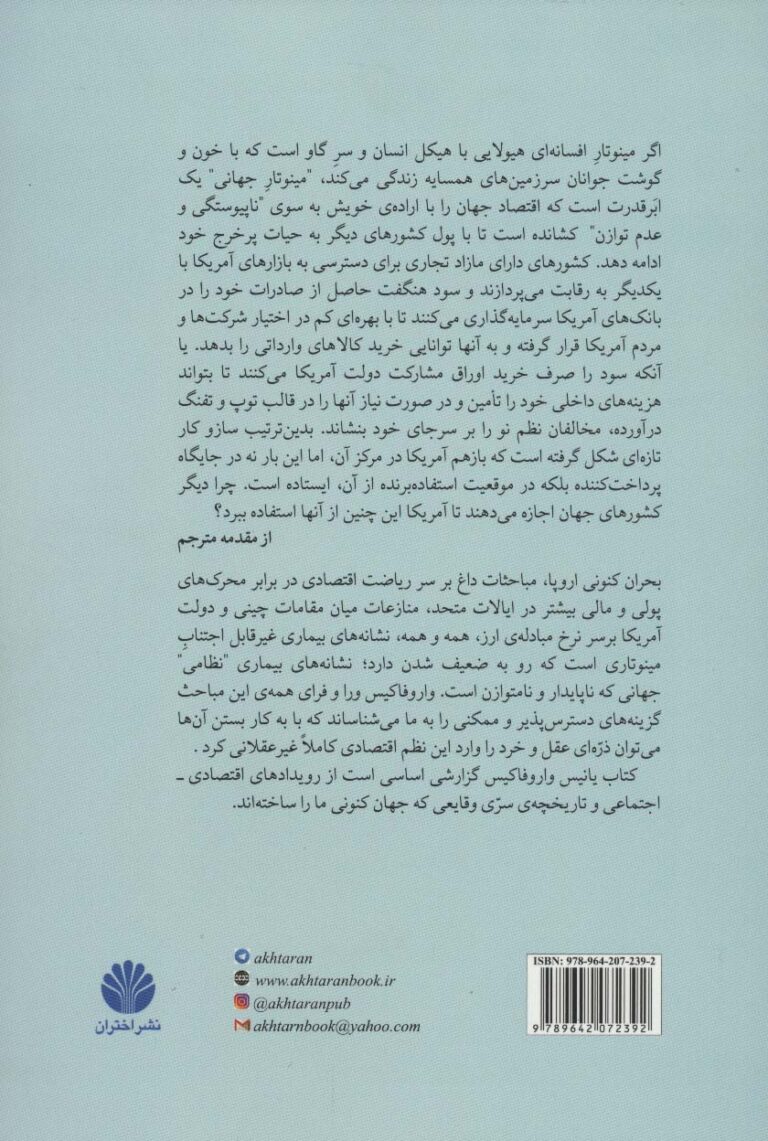 اگر مینوتارِ افسانه‌ای هیولایی با هیکل انسان و سرِ گاو است که با خون و
گوشت جوانان سرزمین‌های همسایه زندگی می‌کند، "مینوتارِ جهانی" یک
ابَرقدرت است که اقتصاد جهان را با اراده‌ی خویش به سوی "ناپیوستگی و
عدم توازن" کشانده است تا با پول کشورهای دیگر به حیات پرخرج خود
ادامه دهد. کشورهای دارای مازاد تجاری برای دسترسی به بازارهای آمریکا با
یکدیگر به رقابت می‌پردازند و سود هنگفت حاصل از صادرات خود را در
بانک‌های آمریکا سرمایه‌گذاری می‌کنند تا با بهره‌ای کم در اختیار شرکت‌ها و
مردم آمریکا قرار گرفته و به آنها توانایی خرید کالاهای وارداتی را بدهد. یا
آنکه سود را صرف خرید اوراق مشارکت دولت آمریکا می‌کنند تا بتواند
هزینه‌های داخلی خود را تأمین و در صورت نیاز آنها را در قالب توپ و تفنگ
درآورده، مخالفان نظم نو را بر سرجای خود بنشاند. بدین‌ترتیب سازو کار
تازه‌ای شکل گرفته است که بازهم آمریکا در مرکز آن، اما این بار نه در جایگاه
پرداخت‌کننده بلکه در موقعیت استفاده‌برنده از آن، ایستاده است. چرا دیگر
کشورهای جهان اجازه می‌دهند تا آمریکا این چنین از آنها استفاده ببرد؟
از مقدمه مترجم
بحران کنونی اروپا، مباحثات داغ بر سر ریاضت اقتصادی در برابر محرک‌های
پولی و مالی بیشتر در ایالات متحد، منازعات میان مقامات چینی و دولت
آمریکا برسر نرخ مبادله‌ی ارز، همه و همه، نشانه‌های بیماری غیرقابل اجتنابِ
مینوتاری است که رو به ضعیف شدن دارد؛ نشانه‌های بیماری "نظامی"
جهانی که ناپایدار و نامتوازن است. واروفاکیس ورا و فرای همه‌ی این مباحث
گزینه‌های دسترس‌پذیر و ممکنی را به ما می‌شناساند که با به کار بستن آن‌ها
می‌توان ذرّه‌ای عقل و خرد را وارد این نظم اقتصادی کاملاً غیرعقلانی کرد .
کتاب یانیس واروفاکیس گزارشی اساسی است از رویدادهای اقتصادی ـ
اجتماعی و تاریخچه‌ی سرّی وقایعی که جهان کنونی ما را ساخته‌اند.
akhtaran
www.akhtaranbook.ir
@akhtaranpub
akhtarnbook@yahoo.com
نشر اختران
ISBN: 978-964-207-239-2
9 789642 072392